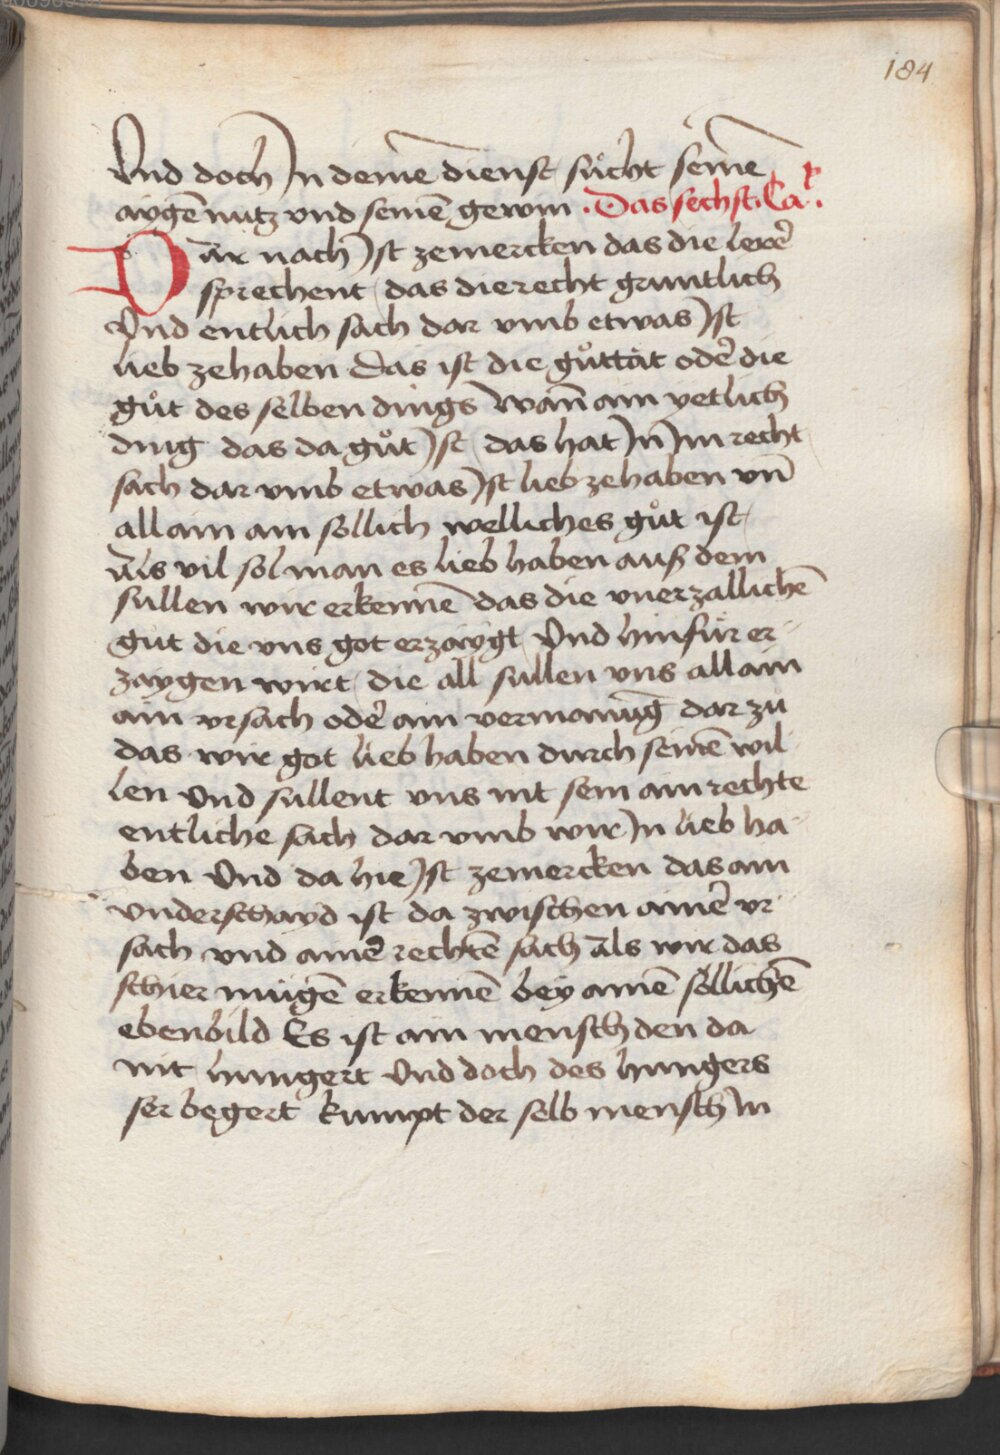 184
Vnd doch In deinē dienst sůcht seinē
aygē nutz vnd seinē gewin · Das sechst Caᵖ ·
Dar nach Ist zemercken das die lerē
sprechent das die recht gruntlich
Vnd entlich sach dar vmb etwas Ist
lieb zehaben Das ist die gůttät odē die
gůt des selben dings Wañ ain yetlich
ding das da gůt Ist das hat In Im recht
sach dar vmb etwas Ist lieb zehaben vñ
allain ain sollich welliches gůt ist
Als vil sol man es lieb haben auß dem
sullen wir erkennē das die vnerzallichē
gut die vns got erzaygt Vnd hinfür er
zaygen wirt die all sullen vns allain
ain vrsach odē ain vermanūg dar zů
das wir got lieb haben durch seinē wil
len Vnd sullent vns nit sein ain rechte
entliche sach dar vmb wir In lieb ha
ben Vnd da hie Ist zemercken das ain
Vnderschayd ist da zwischen ainē vr
sach vnd ainē rechtē sach Als wir das
schier mügē erkennē bey ainē söllichē
ebenbild Es ist ain mensch den da
nit hungert Vnd doch des hungers
ser begert kumpt der selb mensch In